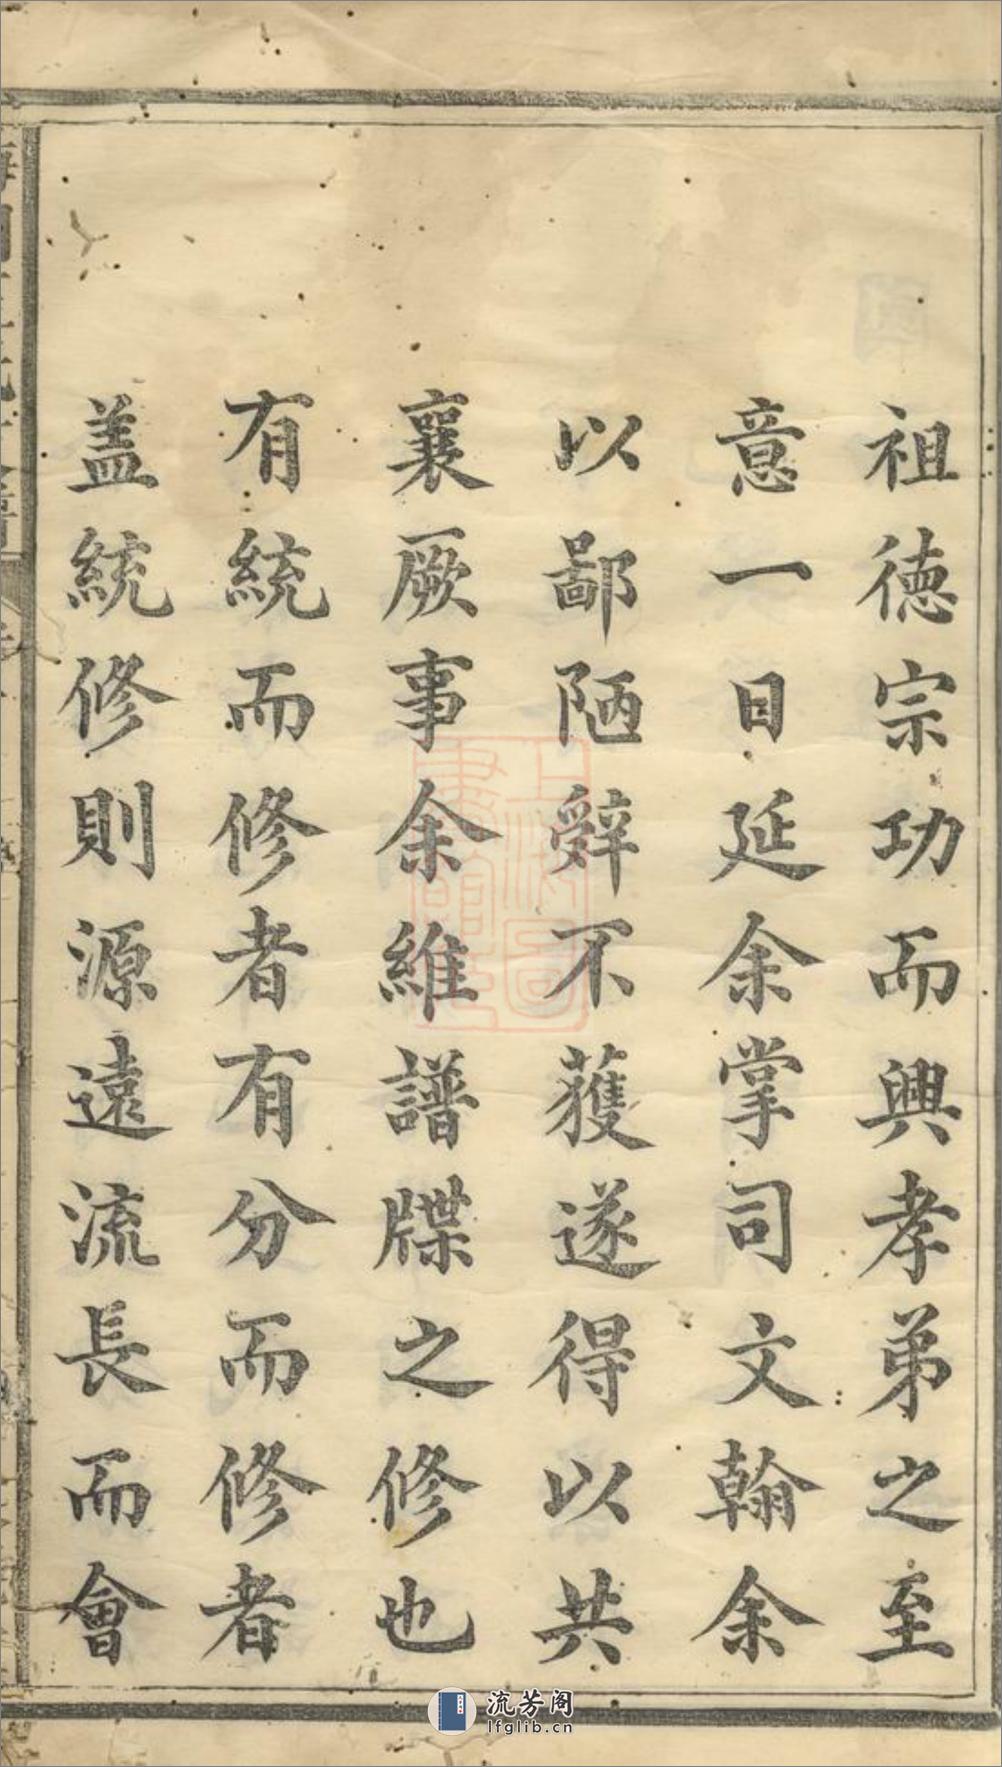 祖德宗功而興孝弟之至
意一日延余掌司文翰余
以鄙陋辤不獲遂得以共
襄厥事余維譜牒之修也
有統而修者有分而修者
盖統修則源遠流長而會
上海圖書館藏
流芳阁
lfglib.cn